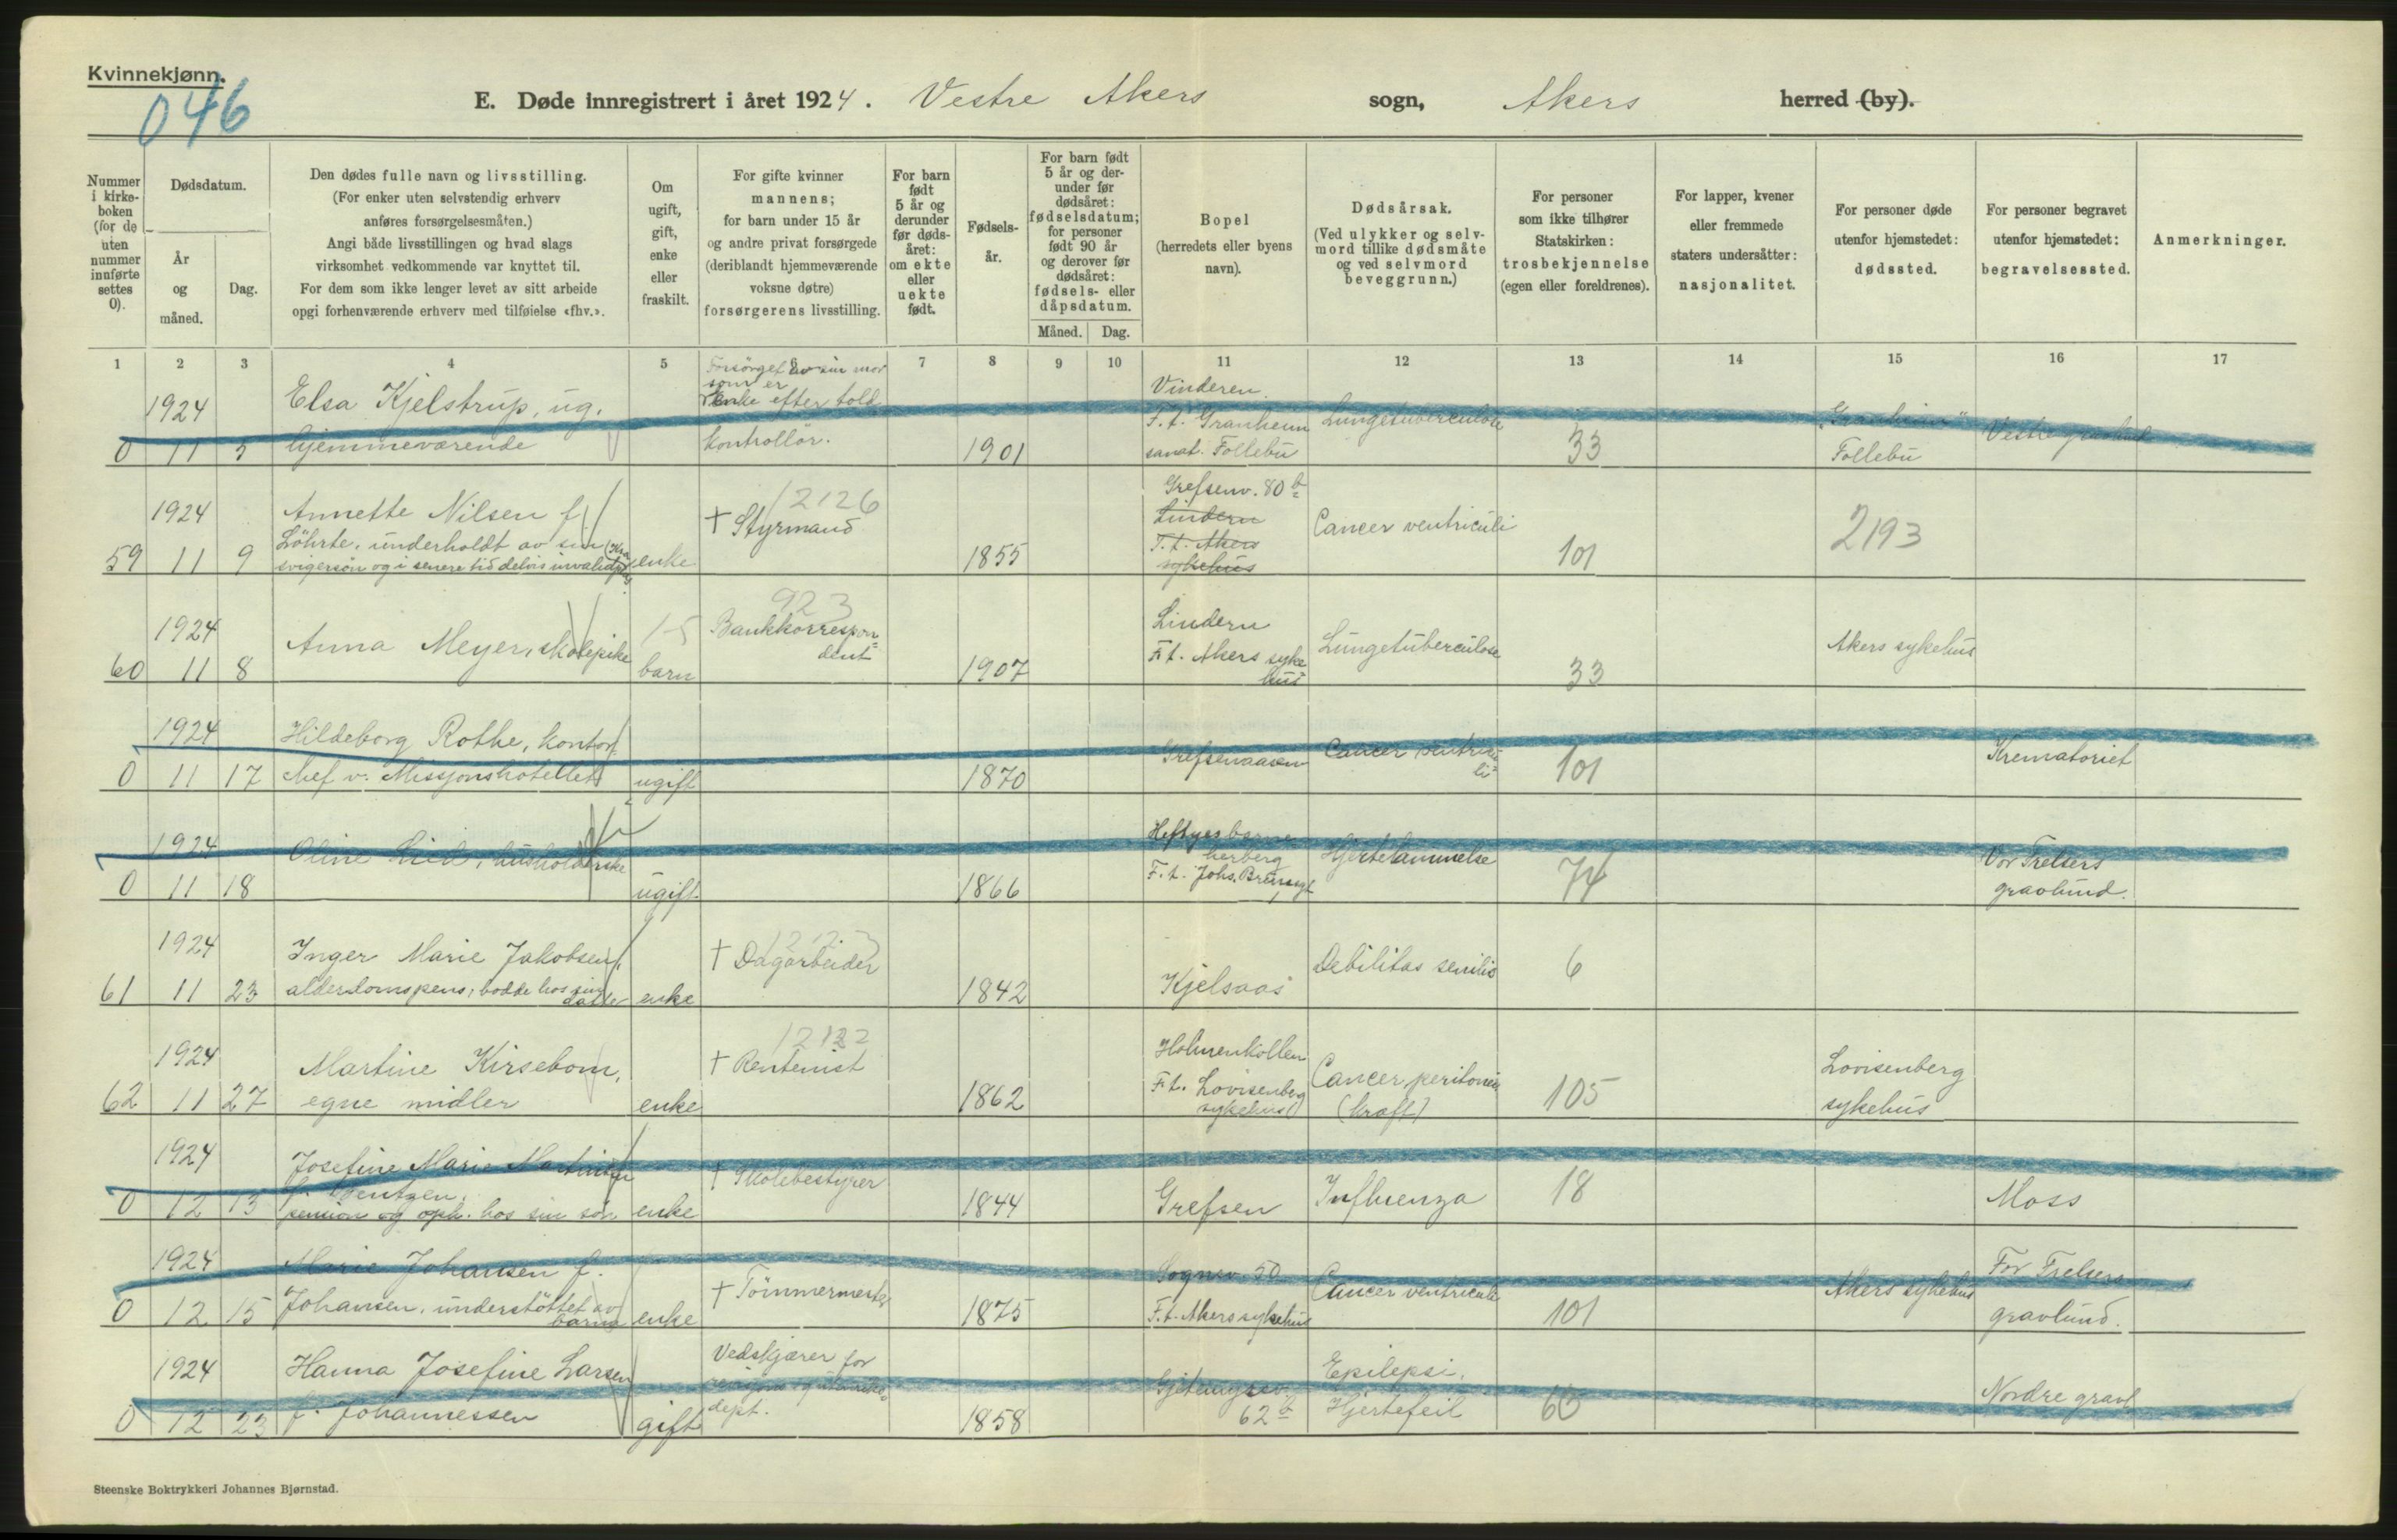 Kvinnekjønn.
046
E. Døde innregistrert i året 1924. Vestre Akers sogn, Akers herred (by).
Nummer i kirkeboken (for de uten nummer innførte settes 0).
Dødsdatum.
År og måned.
Dag.
Den dødes fulle navn og livsstilling.
(For enker uten selvstendig erhverv anføres forsørgelsesmåten.)
Angi både livsstillingen og hvad slags virksomhet vedkommende var knyttet til.
For dem som ikke lenger levet av sitt arbeide opgi forhenværende erhverv med tilføielse «fhv.».
Om ugift, gift, enke eller fraskilt.
For gifte kvinner mannens; for barn under 15 år og andre privat forsørgede (deriblandt hjemmeværende voksne døtre) forsørgerens livsstilling.
For barn født 5 år og derunder før dødsåret: om ekte eller uekte født.
Fødselsår.
For barn født 5 år og derunder før dødsåret: fødselsdatum; for personer født 90 år og derover før dødsåret: fødsels- eller dåpsdatum.
Måned. Dag.
Bopel (herredets eller byens navn).
Dødsårsak.
(Ved ulykker og selvmord tillike dødsmåte og ved selvmord beveggrunn.)
For personer som ikke tilhører Statskirken: trosbekjennelse (egen eller foreldrenes).
For lapper, kvener eller fremmede staters undersåtter: nasjonalitet.
For personer døde utenfor hjemstedet: dødssted.
For personer begravet utenfor hjemstedet: begravelsessted.
Anmerkninger.
1 2 3 4 5 6 7 8 9 10 11 12 13 14 15 16 17
1924 Elsa Kjelstrup, ug. Forsørget av sin mor som er enke efter told Vinderen
0 11 5 hjemmeværende kontrollør. 1901 F. t. Granheim sanat. Follebu Lungetuberculose 33 "Granheim" Follebu Vestre gravlund
1924 Annette Nilsen f. 12126 Grefsenv. 80 b
Löhrte, underholdt av sin † Styrmand Lindern Cancer ventriculi 2193
59 11 9 svigersøn og i senere tid delvis enke 1855 F. t. Akers sykehus 101
1924 923 Lindern
Anna Meyer, skolepike 15 Bankkorrespondent Lungetuberculose Akers sykehus
60 11 8 barn 1907 F. t. Akers sykehus 33
1924 Hildeborg Rothe, kontor-
0 11 17 chef v. Missjonshotellet ugift 1870 Grefsenaasen Cancer ventriculi 101 Krematoriet
1924 Oline Lied, husholderske Heftyes barneherberg Hjertelammelse Vor Frelsers
0 11 18 ugift 1866 F. t. Johs. Brunsgt 74 gravlund.
1924 Inger Marie Jakobsen, † Dagarbeider Debilitas senilis 6
61 11 23 alderdomspens; bodde hos sin datter enke 1842 Kjelsaas
1924 Martine Kirsebom, † Rentenist Holmenkollen Lovisenberg
62 11 27 egne midler enke 1862 F. t. Lovisenberg sykehus Cancer peritonei (kraft) 105 sykehus
1924 Josefine Marie Martinsen † Skolebestyrer Influenza 18
0 12 13 f. Bentzen, pension og oph. hos sin søn enke 1844 Grefsen Moss
1924 Marie Johansen f. Sognsv. 50 Cancer ventriculi For Frelsers
0 12 15 Johansen, understøttet av barna enke † Tømmermester 1875 F. t. Akers sykehus 101 Akers sykehus gravlund.
1924 Hanna Josefine Larsen Vedskjærer for Epilepsi.
0 12 23 f. Johannessen gift dept. 1858 62 b Hjertefeil 60 Nordre gravl
Steenske Boktrykkeri Johannes Bjørnstad.